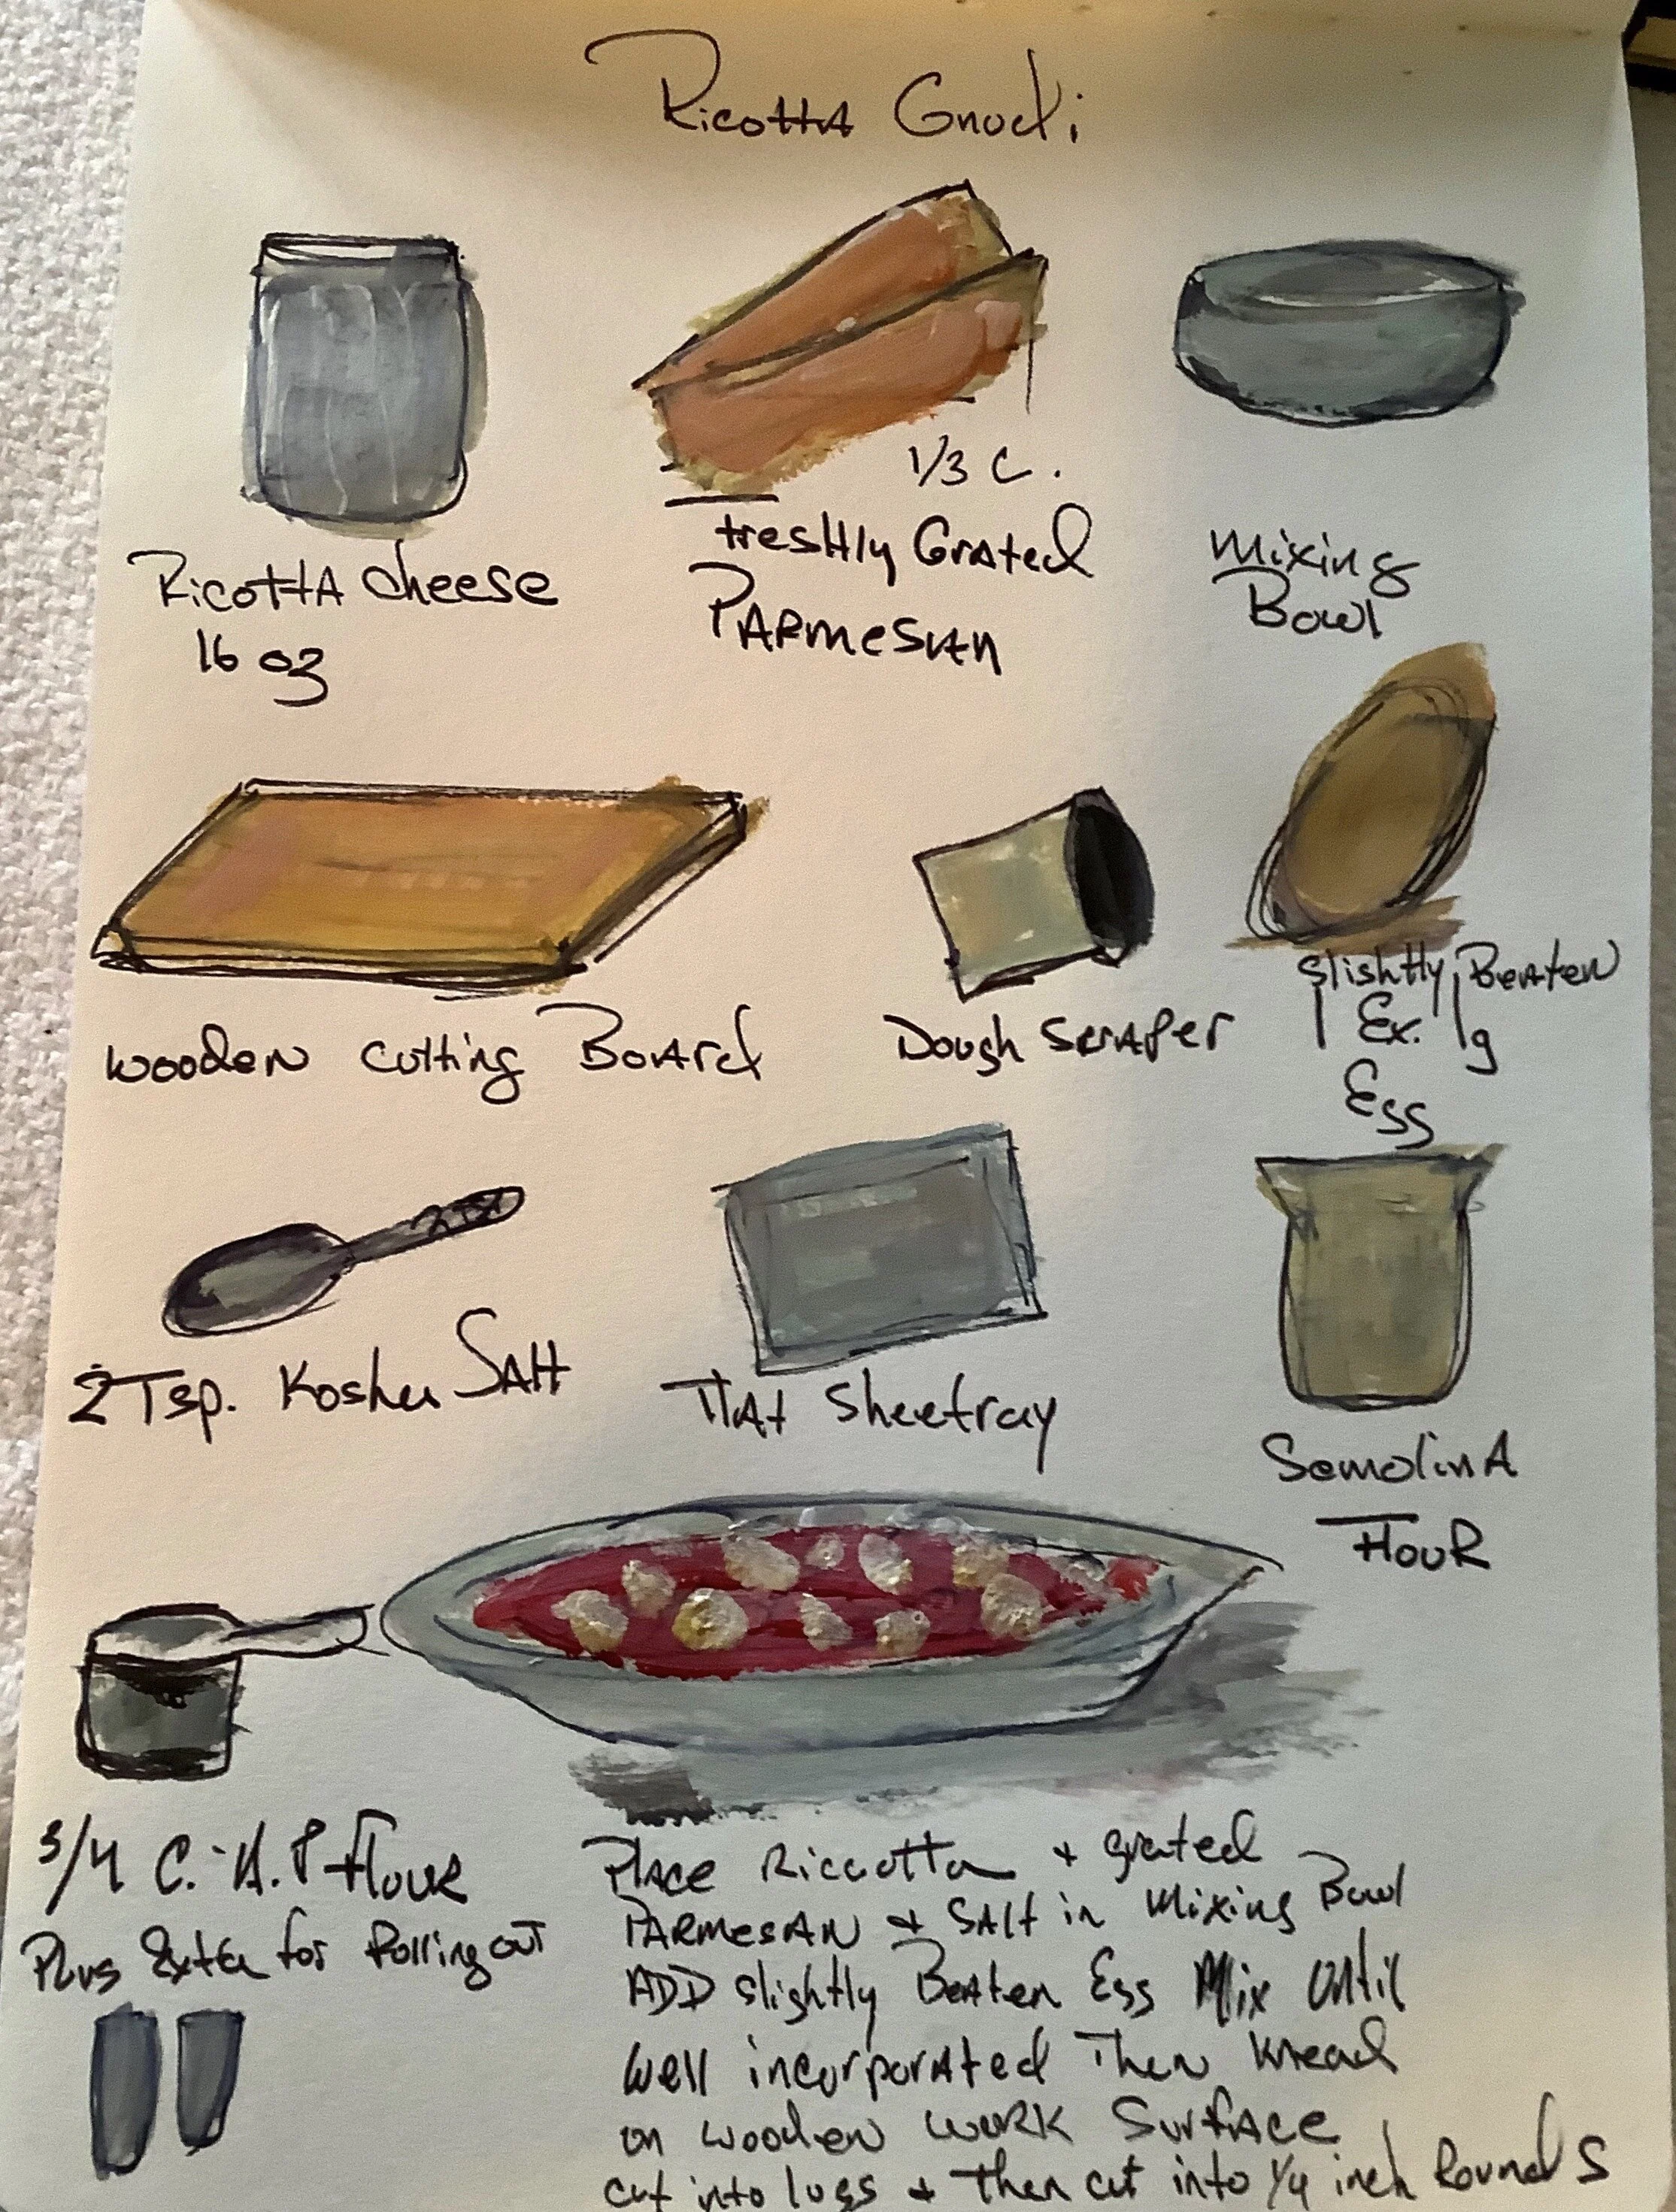 Ricotta Gnudi
Ricotta cheese
16 oz
1/3 C.
freshly Grated
Parmesan
Mixing
Bowl
Wooden cutting Board
Dough Scraper
Slightly Beaten
1 Ex. lg
Egg
2 Tsp. Kosher Salt
Flat Sheetray
Semolina
Flour
3/4 C. A.P Flour
Plus Extra for Rolling out
Place Riccotta + grated
Parmesan + Salt in Mixing Bowl
ADD slightly Beaten Egg Mix Until
well incorporated Then knead
on wooden work Surface
cut into logs + then cut into 1/4 inch Rounds